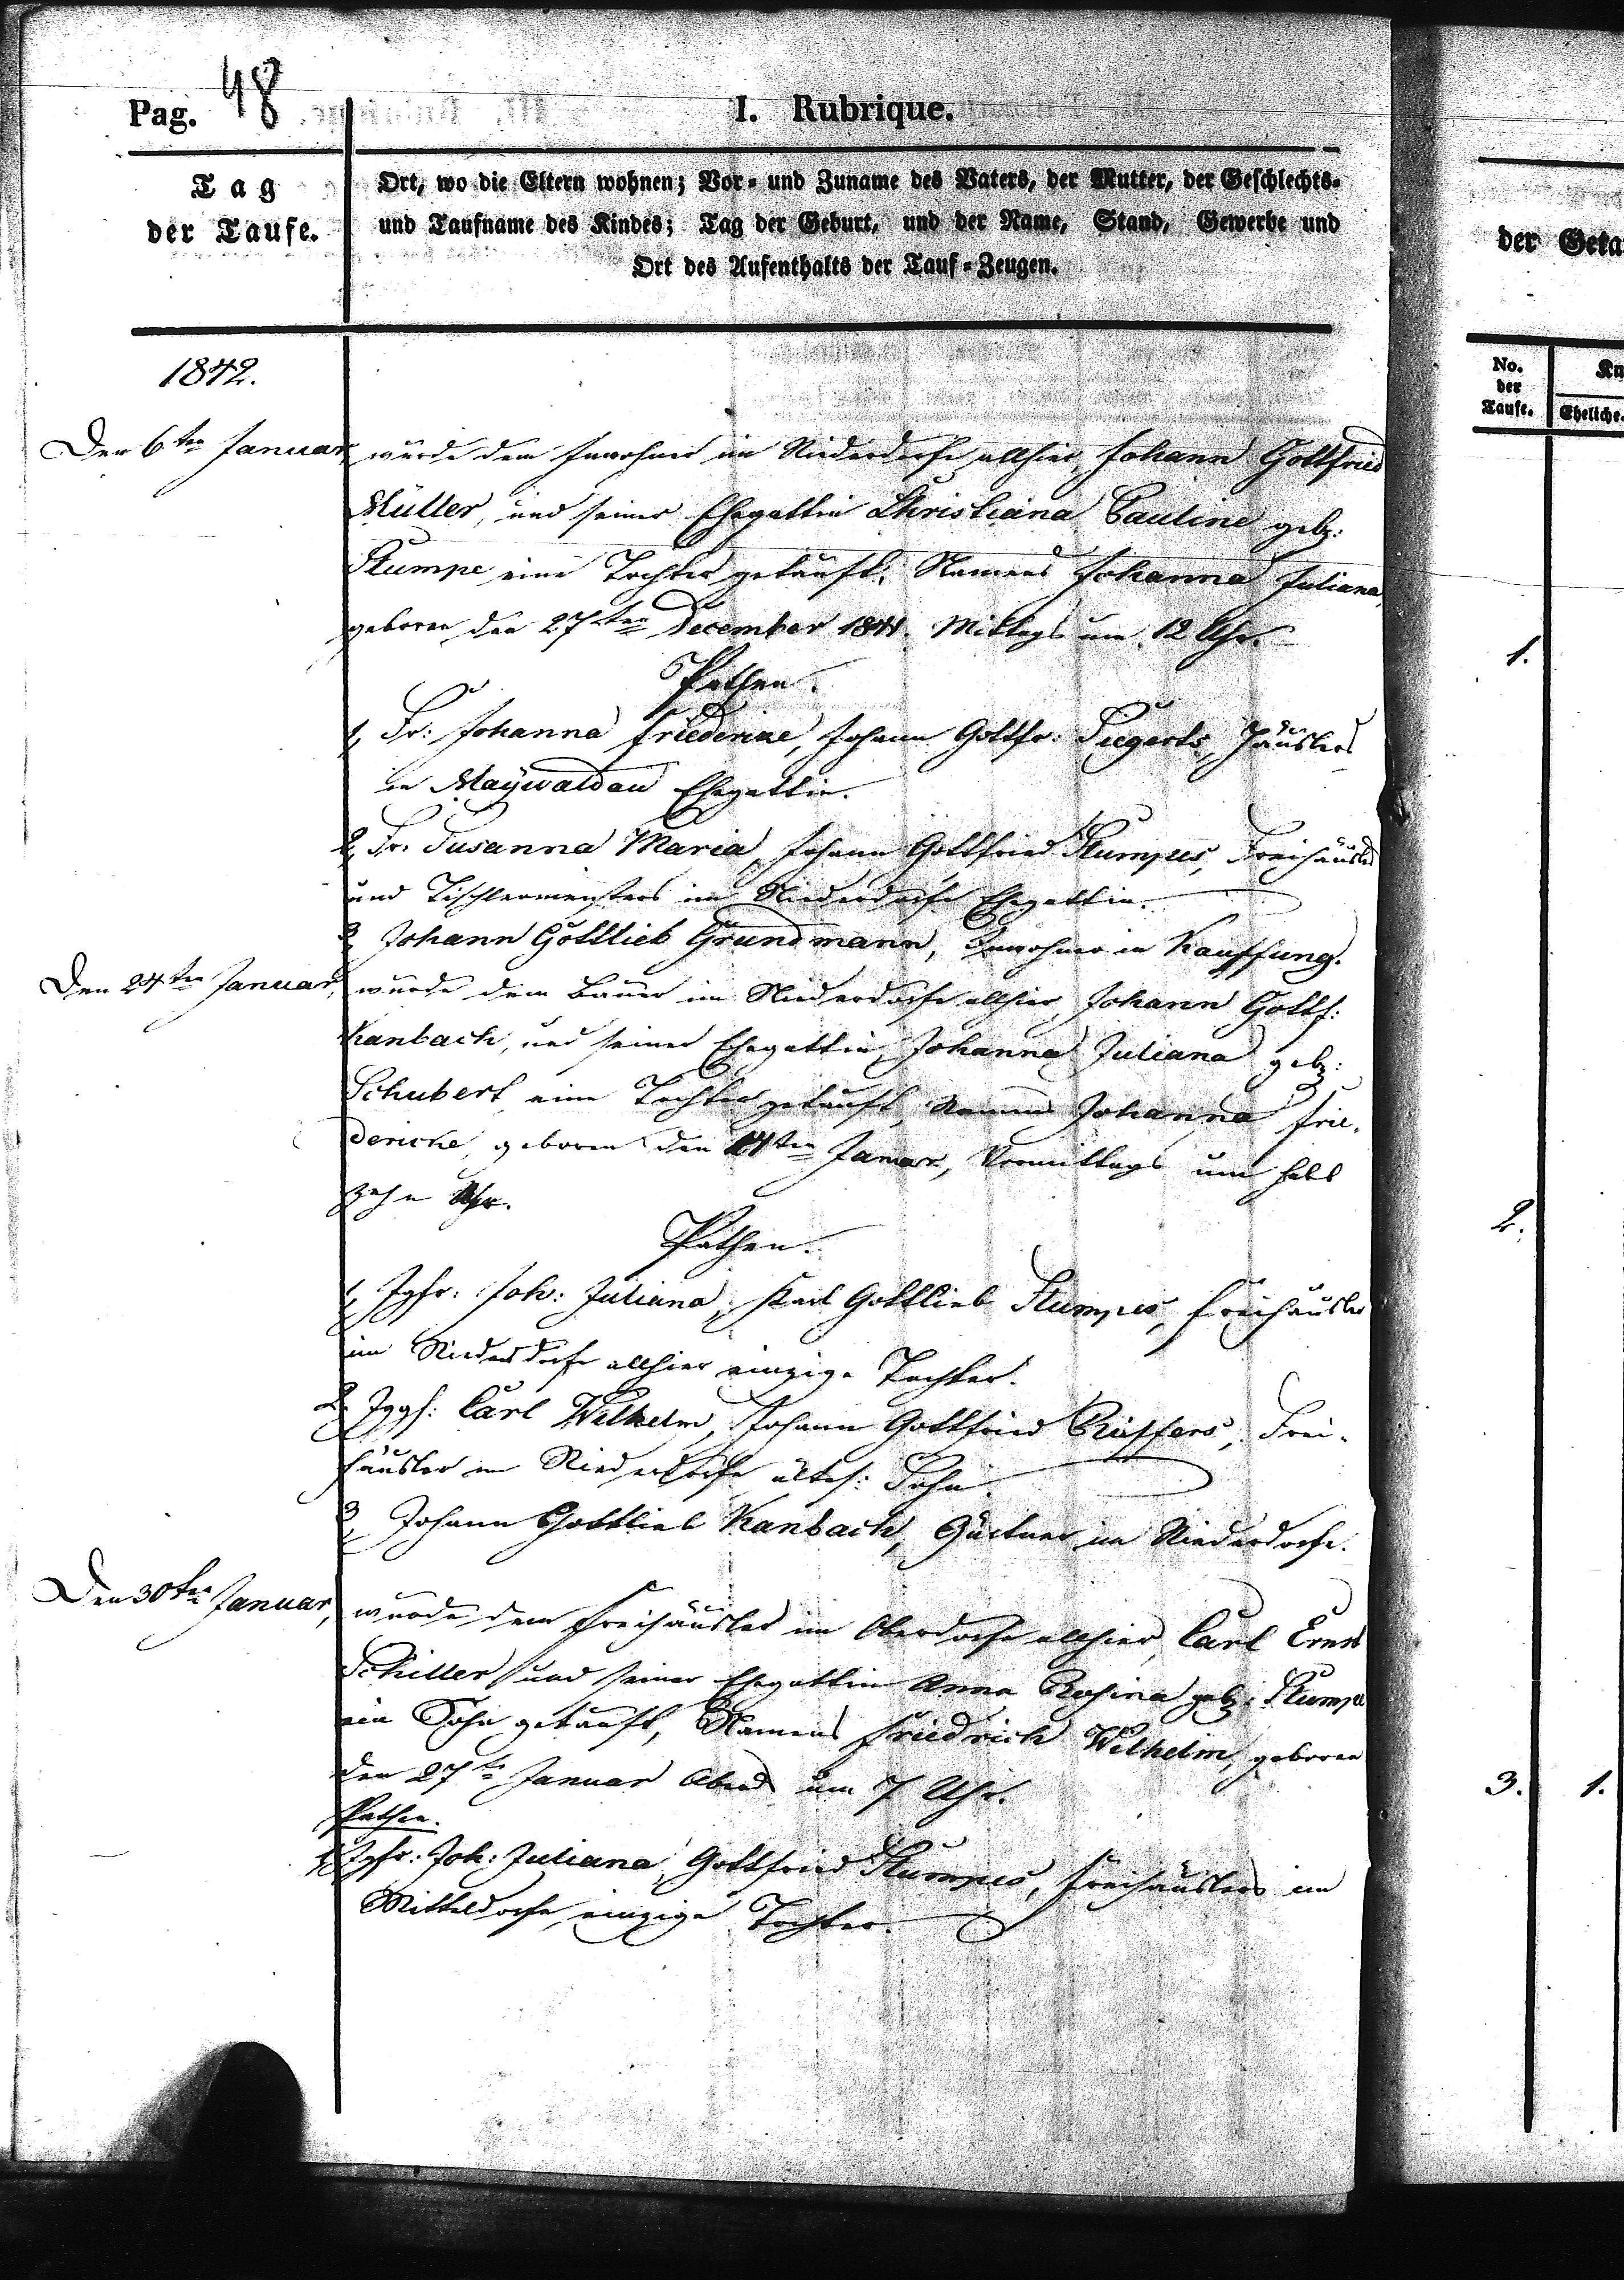 Pag. 48
I. Rubrique.
Tag
der Taufe.
Ort, wo die Eltern wohnen; Vor- und Zuname des Vaters, der Mutter, der Geschlechts-
und Taufname des Kindes; Tag der Geburt, und der Name, Stand, Gewerbe und
Ort des Aufenthalts der Tauf-Zeugen.
1842.
Den 6ten Januar wurde dem Inwohner im Niederdorfe allhier, Johann Gottfried
Müller, und seiner Ehegattin Christiana Pauline geb:
Stumpe eine Tochter getauft, Namens Johanna Juliana,
geboren den 27ten December 1841. Mittags um 12 Uhr.
Pathen.
1, Fr: Johanna Friedericke, Johann Gottfr: Siegerts, Häuslers
in Maywaldau Ehegattin.
2, Fr. Susanna Maria, Johann Gottfried Stumpes, Freihäusler
und Tischlermeisters im Niederdorfe Ehegattin.
3, Johann Gottlieb Grundmann, Inwohner in Kauffung.
Den 24ten Januar, wurde dem Bauer im Niederdorfe allhier, Johann Gottf:
Kanbach, und seiner Ehegattin, Johanna Juliana geb:
Schubert eine Tochter getauft, Namens Johanna Frie-
dericke, geboren den Januar, Vormittags um halb
zehn Uhr.
Pathen.
1, Jgfr: Joh: Juliana, Karl Gottlieb Stumpes, Freihäusler
im Niederdorfe allhier einzige Tochter.
2, Jggs: Carl Wilhelm, Johann Gottfried Rüffers, Frei-
häusler im Niederdorfe ältes: Sohn.
3, Johann Gottlieb Kanbach, Gärtner im Niederdorfe.
Den 30ten Januar, wurde dem Freihäusler im Oberdorfe allhier, Carl Ernst
Schiller und seiner Ehegattin Anna Rosina geb: Stumpe
ein Sohn getauft, Namens Friedrich Wilhelm, geboren
den 27ten Januar Abend um 7 Uhr.
Pathen.
1, Jgfr: Joh: Juliana, Gottfried Stumpes, Freihäuslers im
Mitteldorfe, einzige Tochter.
der Geta
No.
der
Taufe.
Kn
Eheliche.
1.
2.
3. 1.